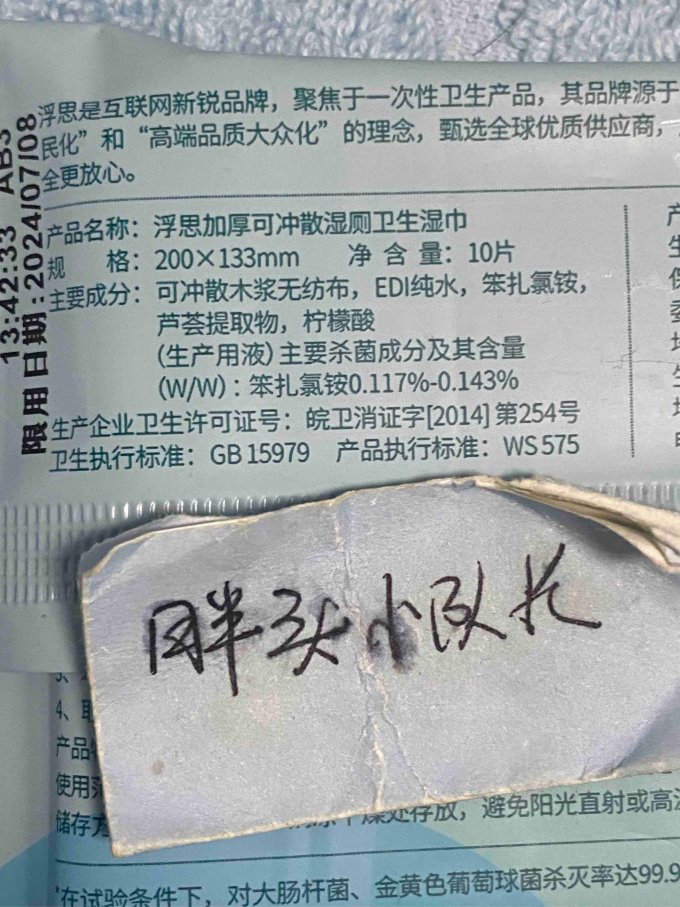 浮思是互联网新锐品牌，聚焦于一次性卫生产品，其品牌源于
民化”和“高端品质大众化”的理念，甄选全球优质供应商，
全更放心。
产品名称：浮思加厚可冲散湿厕卫生湿巾
规 格：200×133mm 净 含 量：10片
主要成分：可冲散木浆无纺布，EDI纯水，笨扎氯铵，
芦荟提取物，柠檬酸
(生产用液)主要杀菌成分及其含量
(W/W)：笨扎氯铵0.117%-0.143%
生产企业卫生许可证号：皖卫消证字[2014]第254号
卫生执行标准：GB 15979 产品执行标准：WS 575
13:42:33 AB3
限用日期:2024/07/08
胖头小队长
4、取
产品
使用范
储存方
燥处存放，避免阳光直射或高温
*在试验条件下，对大肠杆菌、金黄色葡萄球菌杀灭率达99.9